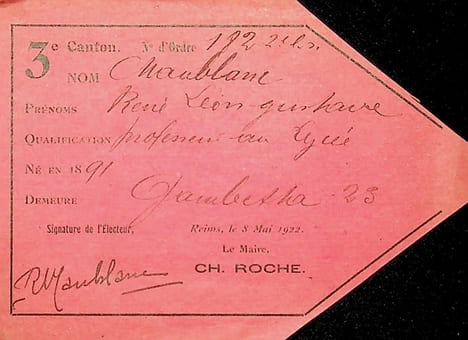 3e Canton. No d'Ordre 182
NOM Maublanc
PRÉNOMS René Léon gustave
QUALIFICATION professeur au Lycée
NÉ EN 1891
DEMEURE Gambetta 23
Signature de l'Électeur, Reims, le 8 Mai 1922.
Le Maire,
CH. ROCHE.
R Maublanc